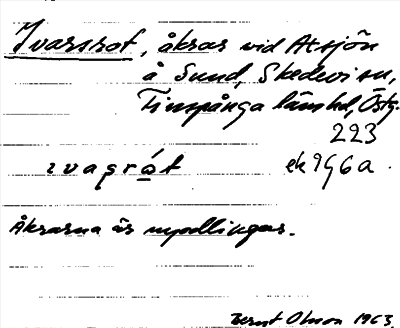 Ivarsrot, åkrar vid Atsjön
å Sund, Skedevi sn,
Finspånga länshd, Östg.
223
ivagrót ek 9g6a.
Åkrarna är nyodlingar.
Bernt Olsson 1963.